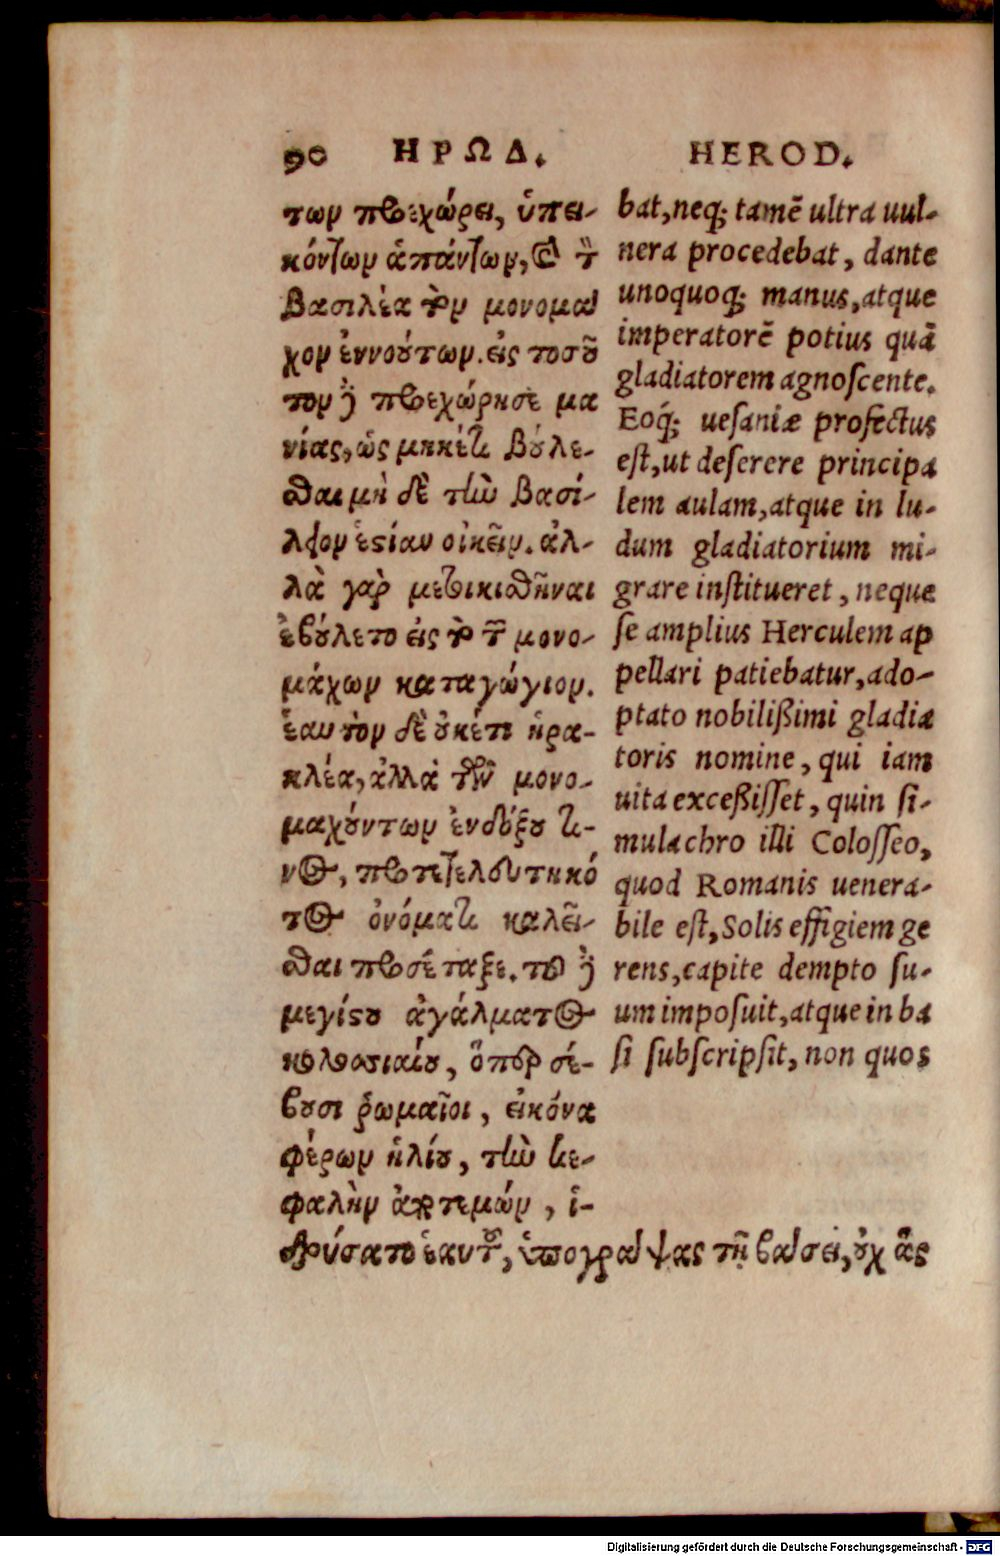 90 ΗΡΩΔ. HEROD.
των προεχώρει, ὑπει-
κόντων ἁπάντων, καὶ τὸν
βασιλέα τὸν μονομά
χον ἐννοούτων. εἰς τοσοῦ
τον δὲ προεχώρησε μα
νίας, ὡς μηκέτι βούλε-
σθαι μὴ δὲ τὴν βασί-
λειον ἑστίαν οἰκεῖν. ἀλ-
λὰ γὰρ μετοικισθῆναι
ἐβούλετο εἰς τὸ τῶν μονο-
μάχων καταγώγιον.
ἑαυτὸν δὲ οὐκέτι ἡρα-
κλέα, ἀλλὰ τῶν μονο-
μαχούντων ἐνδόξου τι-
νος, προτετελευτηκό
τος ὀνόματι καλεῖ-
σθαι προσέταξε. τοῦ δὲ
μεγίστου ἀγάλματος
κολοσσιαίου, ὅπερ σέ-
βουσι ῥωμαῖοι, εἰκόνα
φέρων ἡλίου, τὴν κε-
φαλὴν ἀποτεμών, ἱ-
δρύσατο ἑαυτοῦ, ὑπογράψας τῇ βάσει, οὐχ ἃς
bat, neq; tamē ultra uul-
nera procedebat, dante
unoquoq; manus, atque
imperatorē potius quā
gladiatorem agnoſcente.
Eoq́; ueſaniæ profectus
eſt, ut deſerere principa
lem aulam, atque in lu-
dum gladiatorium mi-
grare inſtitueret, neque
ſe amplius Herculem ap
pellari patiebatur, ado-
ptato nobilißimi gladia
toris nomine, qui iam
uita exceßiſſet, quin ſi-
mulachro illi Coloſſeo,
quod Romanis uenera-
bile eſt, Solis effigiem ge
rens, capite dempto ſu-
um impoſuit, atque in ba
ſi ſubſcripſit, non quos
Digitalisierung gefördert durch die Deutsche Forschungsgemeinschaft - DFG